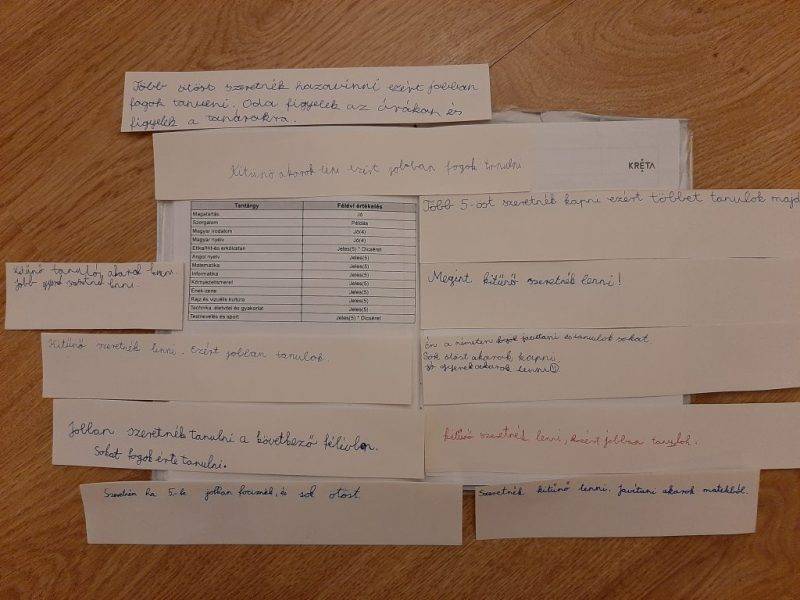 Több ötöst szeretnék hazavinni ezért jobban
fogok tanulni. Oda figyelek az órákon és
figyelek a tanárokra.
Kitűnő akarok lenni ezért jobban fogok tanulni
KRÉTA
Tantárgy Félévi értékelés
Magatartás Jó
Szorgalom Példás
Magyar irodalom Jó(4)
Magyar nyelv Jó(4)
Etika/hit és erkölcstan Jeles(5) * Dicséret
Angol nyelv Jeles(5)
Matematika Jeles(5)
Informatika Jeles(5)
Környezetismeret Jeles(5)
Ének-zene Jeles(5)
Rajz és vizuális kultúra Jeles(5)
Technika, életvitel és gyakorlat Jeles(5)
Testnevelés és sport Jeles(5) * Dicséret
Több 5-öst szeretnék kapni ezért többet tanulok majd
Kitűnő tanuló akarok lenni.
Jobb gyerek lenni.
Megint kitűnő szeretnék lenni!
Kitűnő szeretnék lenni. Ezért jobban tanulok.
Én a németen fogok javítani és tanulok sokat
Sok ötöst akarok kapni
jó gyerek akarok lenni
Jobban szeretnék tanulni a következő félévben.
Sokat fogok érte tanulni.
kitűnő szeretnék lenni, ezért jobban tanulok.
ha 5.-be jobban fociznék, és sok ötöst.
Szeretnék kitűnő lenni. Javítani akarok matekból.